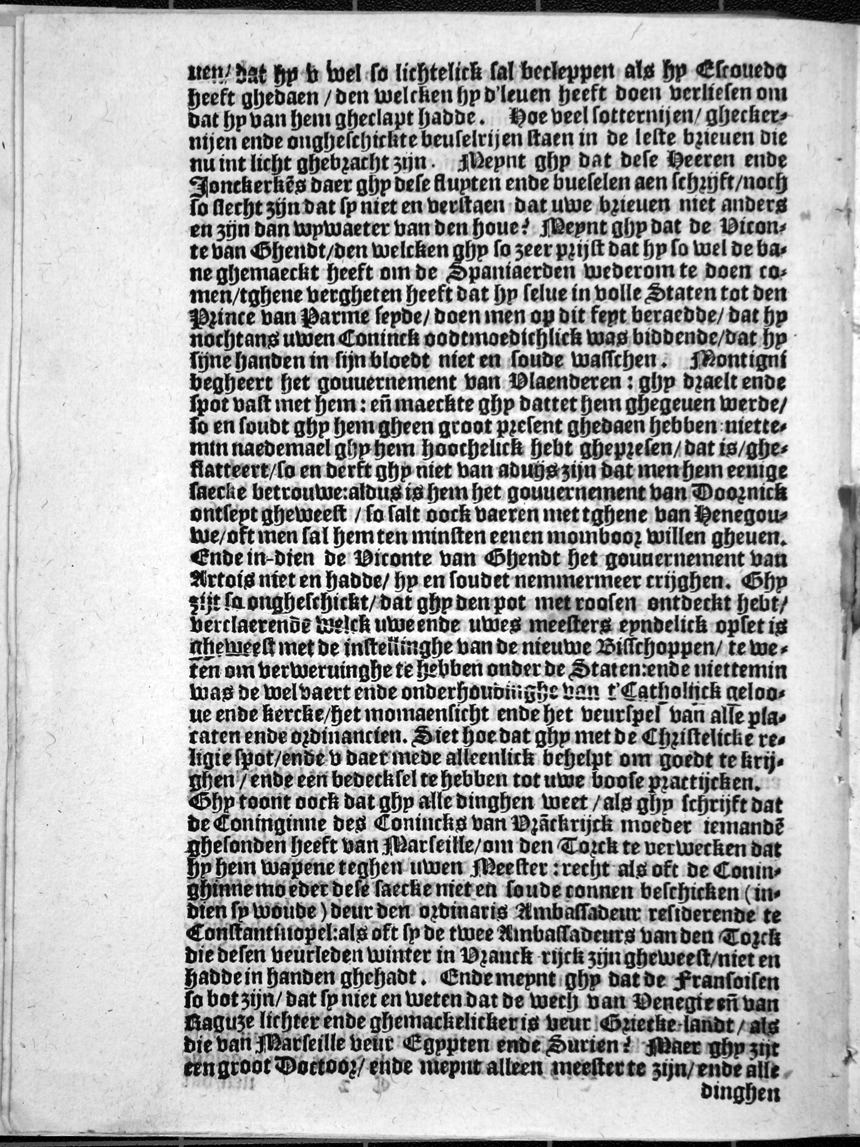 uen/ dat hy v wel so lichtelick sal becleppen als hy Escouedo
heeft ghedaen / den welcken hy d'leuen heeft doen verliesen om
dat hy van hem gheclapt hadde. Hoe veel sotternijen/ ghecker-
nijen ende ongheschickte beuselrijen staen in de leste brieuen die
nu int licht ghebracht zijn. Meynt ghy dat dese Heeren ende
Jonckerkēs daer ghy dese fluyten ende bueselen aen schrijft/noch
so slecht zijn dat sy niet en verstaen dat uwe brieuen niet anders
en zijn dan wywaeter van den houe? Meynt ghy dat de Vicon-
te van Ghendt/den welcken ghy so zeer prijst dat hy so wel de ba-
ne ghemaeckt heeft om de Spaniaerden wederom te doen co-
men/tghene vergheten heeft dat hy selue in volle Staten tot den
Prince van Parme seyde/ doen men op dit feyt beraedde/ dat hy
nochtans uwen Coninck oodtmoedichlick was biddende/dat hy
sijne handen in sijn bloedt niet en soude wasschen. Montigni
begheert het gouuernement van Vlaenderen : ghy draelt ende
spot vast met hem : eñ maeckte ghy dattet hem ghegeuen werde/
so en soudt ghy hem gheen groot present ghedaen hebben: niette-
min naedemael ghy hem hoochelick hebt ghepresen/ dat is/ghe-
flatteert/so en derft ghy niet van aduijs zijn dat men hem eenige
saecke betrouwe:aldus is hem het gouuernement van Doornick
ontseyt gheweest / so salt oock vaeren met tghene van Henegou-
we/oft men sal hem ten minsten eenen momboor willen gheuen.
Ende in-dien de Viconte van Ghendt het gouuernement van
Artois niet en hadde/ hy en soudet nemmermeer crijghen. Ghy
zijt so ongheschickt/ dat ghy den pot met roosen ontdeckt hebt/
verclaerende welck uwe ende uwes meesters eyndelick opset is
gheweest met de instellinghe van de nieuwe Bisschoppen/ te we-
ten om verweruinghe te hebben onder de Staten:ende niettemin
was de welvaert ende onderhoudinghe van t'Catholijck geloo-
ue ende kercke/het momaensicht ende het veurspel van alle pla-
caten ende ordinancien. Siet hoe dat ghy met de Christelicke re-
ligie spot/ende v daer mede alleenlick behelpt om goedt te krij-
ghen / ende een bedecksel te hebben tot uwe boose practijcken.
Ghy toont oock dat ghy alle dinghen weet / als ghy schrijft dat
de Coninginne des Conincks van Vrāckrijck moeder iemandē
ghesonden heeft van Marseille/om den Torck te verwecken dat
hy hem wapene teghen uwen Meester : recht als oft de Conin-
ghinne moeder dese saecke niet en soude connen beschicken (in-
dien sy woude) deur den ordinaris Ambassadeur residerende te
Constantinopel:als oft sy de twee Ambassadeurs van den Torck
die desen veurleden winter in Vranck rijck zijn gheweest/niet en
hadde in handen ghehadt. Ende meynt ghy dat de Fransoisen
so bot zijn/ dat sy niet en weten dat de wech van Venegie eñ van
Raguze lichter ende ghemackelicker is veur Griecke-landt / als
die van Marseille veur Egypten ende Surien? Maer ghy zijt
een groot Doctoor/ ende meynt alleen meester te zijn/ ende alle
dinghen